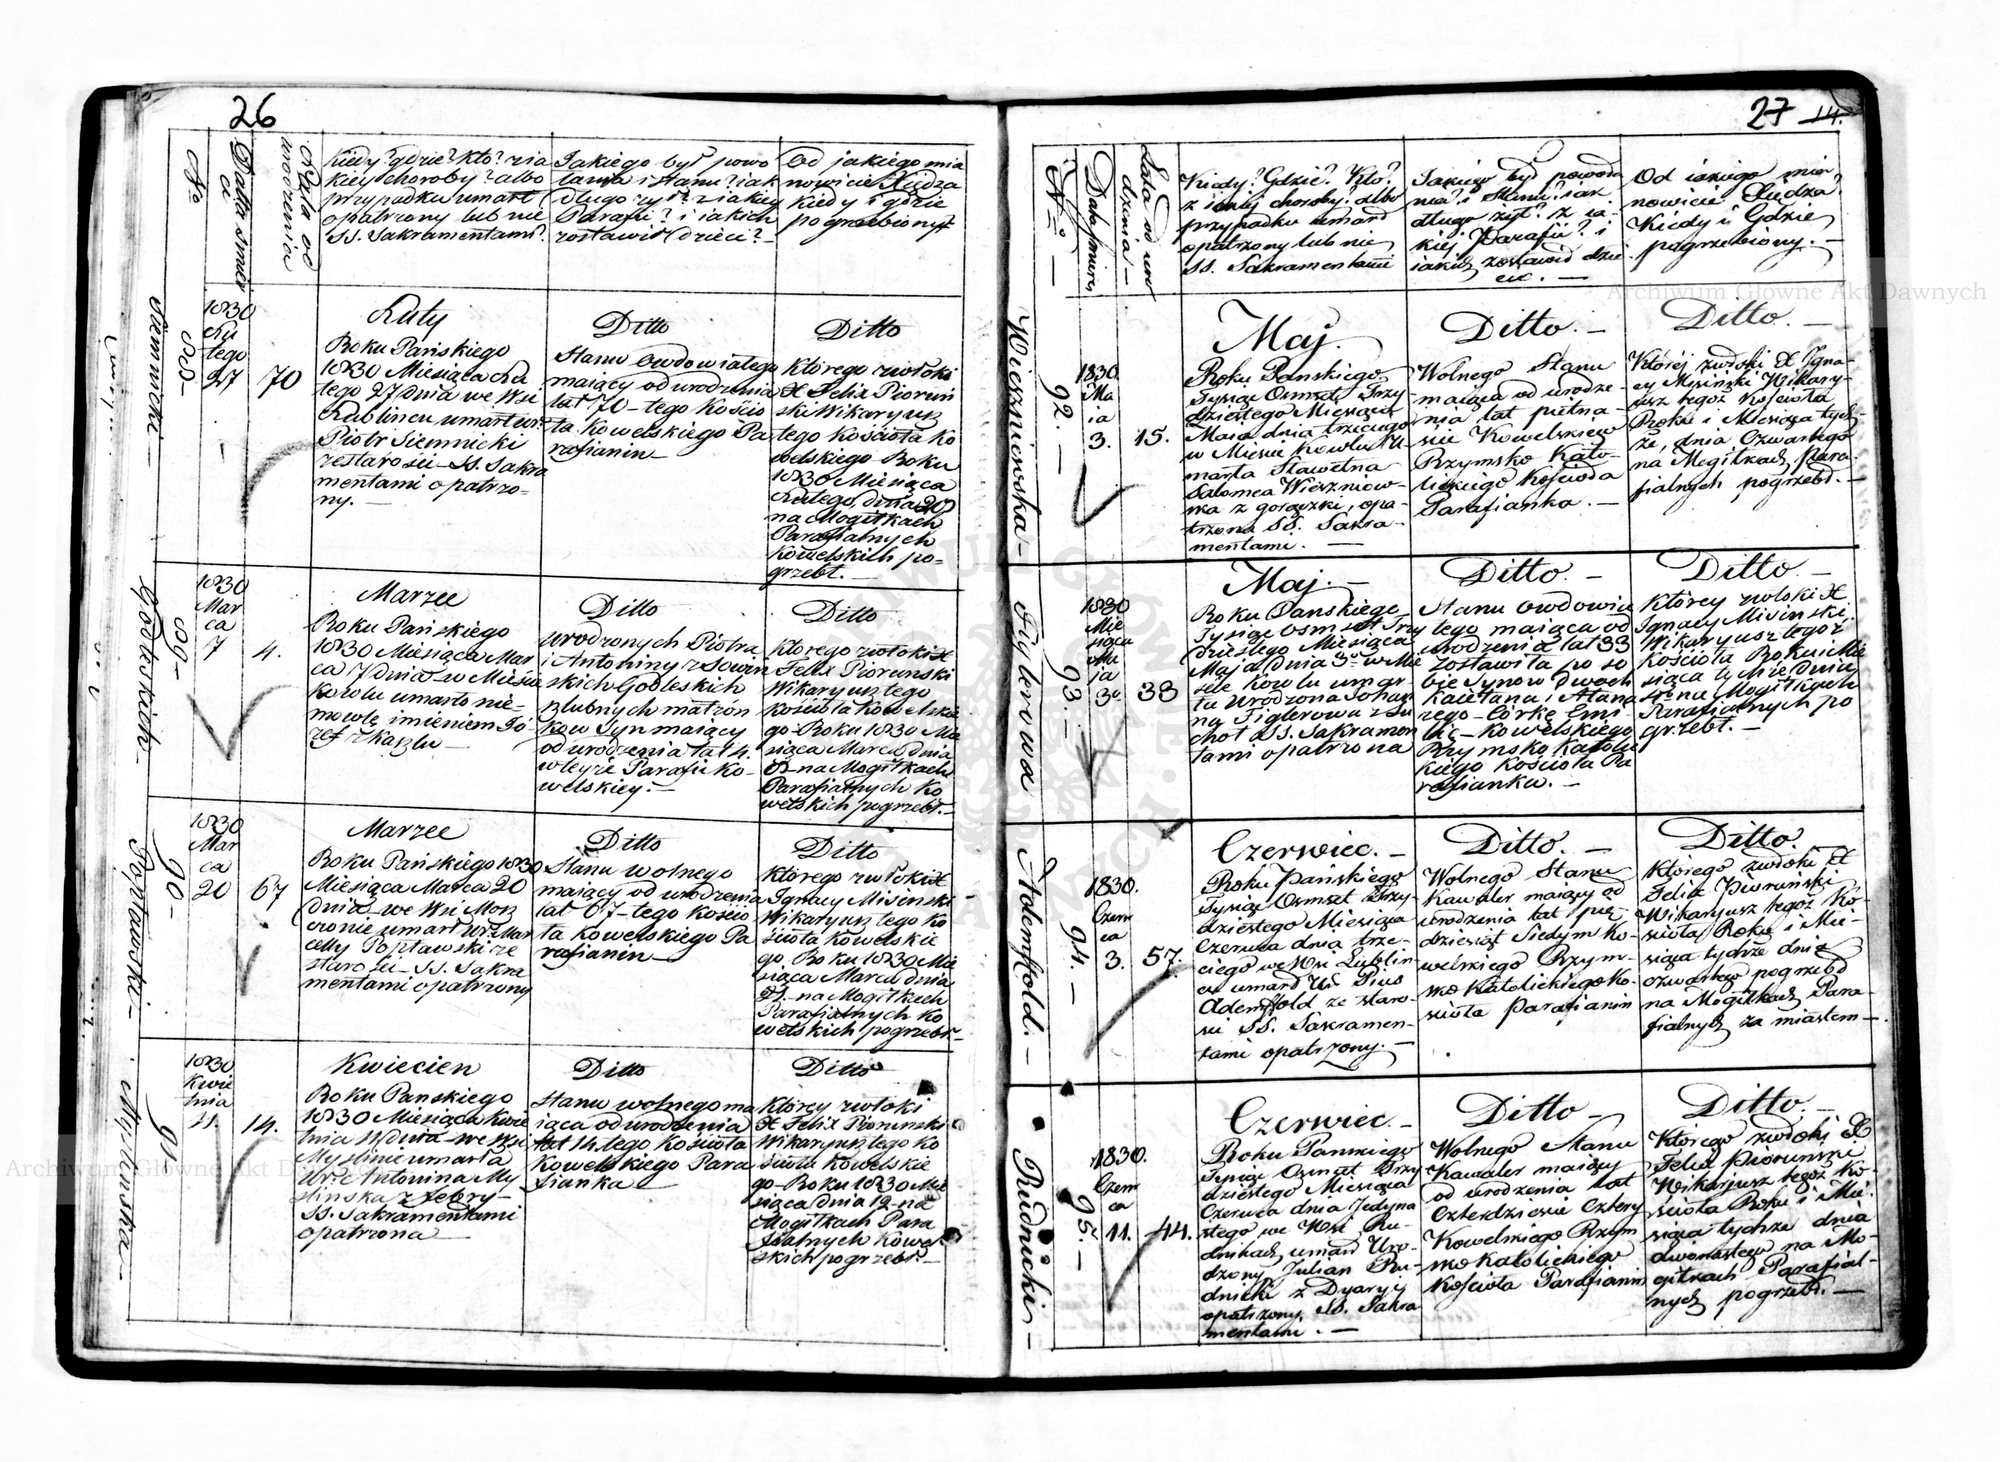 26
No
Datta śmier
ci
Lata od
urodzenia
Kiedy? gdzie? kto? z ja
kiey choroby? albo
przypadku umarł
opatrzony lub nie
SS. Sakramentami?
Jakiego był powo
łania i stanu? iak
długo żył? z iakiey
Parafii? i iakich
zostawił dzieci?
Od jakiego mia
nowicie Xiędza
kiedy i gdzie
pogrzebiony?
Siemnicki
88
1830
Lu
tego
27
70
Luty
Roku Pańskiego
1830 Miesiąca Lu
tego 27 Dnia we Wsi
Lublincu umarł ur.
Piotr Siemnicki
ze starości SS. Sakra
mentami opatrzo-
ny.
Ditto
Stanu owdowiałego
maiący od urodzenia
lat 70 tego Kościo
ła Kowelskiego Pa
rafianin
Ditto
Którego zwłoki
X Felix Pioruń
ski Wikaryusz
tego Kościoła Ko
welskiego Roku
1830 Miesiąca
Lutego, dnia
na Mogiłkach
Parafialnych
Kowelskich po-
grzebł.
89
1830
Mar
ca
7
4.
Marzec
Roku Pańskiego
1830 Miesiąca Mar
ca 7 Dnia w Mieście
Kowlu umarło nie-
mowlę imieniem Jó-
zef z kaszlu
Ditto
Urodzonych Piotra
i Antoniny z
skich
ślubnych małżon
ków Syn maiący
od urodzenia lat 4.
w teyże Parafii Ko-
welskiey.
Ditto
Którego zwłoki X
Felix Pioruński
Wikaryusz tego
Kościoła Kowelskie
go Roku 1830 Mie
siąca Marca dnia
na Mogiłkach
Parafialnych Ko
welskich pogrzebł.
Popławski
90
1830
Mar
ca
20
67
Marzec
Roku Pańskiego 1830
Miesiąca Marca 20
Dnia we Wsi
umarł Ur. Mar
celly Popławski ze
starości SS. Sakra
mentami opatrzony
Ditto
Stanu wolnego
maiący od urodzenia
lat 67 tego Kościo
ła Kowelskiego Pa
rafianin
Ditto
Którego zwłoki X
Ignacy Misinski
Wikaryusz tego Ko
ścioła Kowelskie
go Roku 1830 Mie
siąca Marca dnia
na Mogiłkach
Parafialnych Ko
welskich pogrzebł.
Myslinska
91
1830
Kwie
tnia
11.
14.
Kwiecien
Roku Panskiego
1830 Miesiąca Kwie
tnia 11 Dnia we Wsi
Myslinie umarła
Ur. Antonina My
slinska z febry
SS. Sakramentami
opatrzona
Ditto
Stanu wolnego ma
iąca od urodzenia
lat 14 tego Kościoła
Kowelskiego Para
fianka
Ditto
Którey zwłoki
X Felix Pioruński
Wikaryusz tego Ko
ścioła Kowelskie
go Roku 1830 Mie
siąca Dnia 12 na
Mogiłkach Para
fialnych Kowel
skich pogrzebł.
27 14.
No
Data śmierci
Lata od uro
dzenia
Kiedy? Gdzie? Kto?
z iakiej choroby, albo
przypadku umarł
opatrzony lub nie
SS. Sakramentami
Jakiego był powoła
nia i Stanu? iak
długo żył? z ia-
kiej Parafii? i
iakich zostawił dzie
ci.
Od iakiego mia
nowicie Xiędza?
Kiedy i Gdzie
pogrzebiony.
Wiszniowska
92.
1830.
Ma
ia
3.
15.
Maj.
Roku Panskiego
Tysiąc Osmset Trzy
dziestego Miesiąca
Maia dnia trzeciego
w Miescie Kowlu U
marła Sławetna
Salomea Wiszniow-
ska z gorączki, opa-
trzona SS. Sakra-
mentami.
Ditto.
Wolnego Stanu
maiąca od urodze
nia lat pietna-
scie Kowelskiego
Rzymsko Kato-
lickiego Kościoła
Parafianka.
Ditto.
Któréj zwłoki X Igna-
cy Misiński Wikary-
usz tegoż Kościoła
Roku i Miesiąca tych-
że, dnia Czwartego
na Mogiłkach Para-
fialnych pogrzebł.
Figlerowa
93.
1830
Mie
siąca
Ma
ia
3o
38
Maj.
Roku Panskiego
Tysiąc Osmset Trzy
dziestego Miesiąca
Maja Dnia 3o w Mie
scie Kowlu umar
ła Urodzona Johan
na Figlerowa z Su
chot SS. Sakramen
tami opatrzona
Ditto.
Stanu owdowia
łego maiąca od
urodzenia lat 33
zostawiła po so
bie Synów dwoch
Kaietana i Atana
zego Córkę Emi
lię Kowelskiego
Rzymsko Katolic
kiego Kościoła Pa
rafianka.
Ditto.
Którey zwłoki X
Ignacy Misinski
Wikaryusz tegoż
Kościoła Roku i Mie
siąca tychże Dnia
na Mogiłkach
Parafialnych po
grzebł.
Adempfold.
94.
1830.
Czerw
ca
3.
57.
Czerwiec.
Roku Pańskiego
Tysiąc Osmset Trzy-
dziestego Miesiąca
Czerwca dnia trze-
ciego we Wsi Lublin-
cu umarł Ur. Pius
Adempfold ze staro-
ści SS. Sakramen-
tami opatrzony.
Ditto.
Wolnego Stanu
Kawaler maiący od
urodzenia lat pię-
dziesiąt Siedym Ko-
welskiego Rzym-
sko Katolickiego Ko-
ścioła Parafianin
Ditto.
Którego zwłoki X
Felix Pioruński
Wikaryusz tegoż Ko-
scioła Roku i Mie
siąca tychże dnia
czwartego pogrzebł
na Mogiłkach Para-
fialnych za miastem
Rudnicki
95.
1830.
Czerw
ca
11.
44.
Czerwiec.
Roku Panskiego
Tysiąc Osmset Trzy
dziestego Miesiąca
Czerwca dnia Jedyna
stego we Wsi Ru-
dnikach umarł Uro-
dzony Julian Ru-
dnicki z Dyaryi
opatrzony SS. Sakra
mentami.
Ditto
Wolnego Stanu
Kawaler maiący
od urodzenia lat
Czterdziescie Cztery
Kowelskiego Rzym
sko Katolickiego
Kościoła Parafianin
Ditto.
Którego zwłoki X
Felix Pioruński
Wikaryusz tegoż Ko-
scioła Roku i Mie-
siąca tychże dnia
dwonastego na Mo-
giłkach Parafial-
nych pogrzebł.
Archiwum Główne Akt Dawnych
Archiwum Główne Akt Dawnych
ARCHIWUM GŁÓWNE AKT DAWNYCH